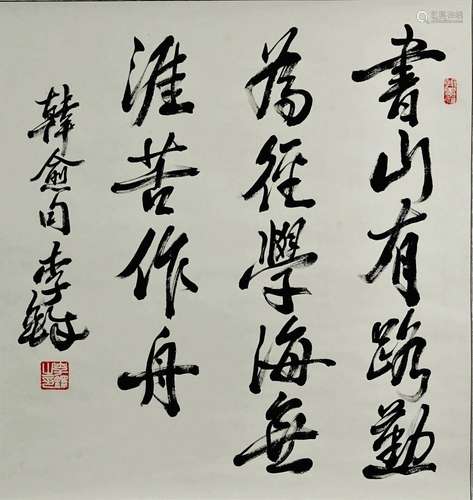 書山有路勤
為徑學海無
涯苦作舟
韓愈句 李鐸